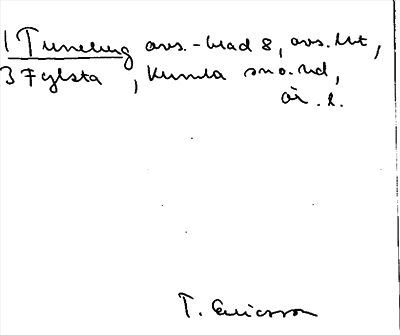 1 Tuneberg avs.-blad 8, avs. Mt,
3 Fylsta, Kumla snö.rd,
är. l.
T. Ericsson